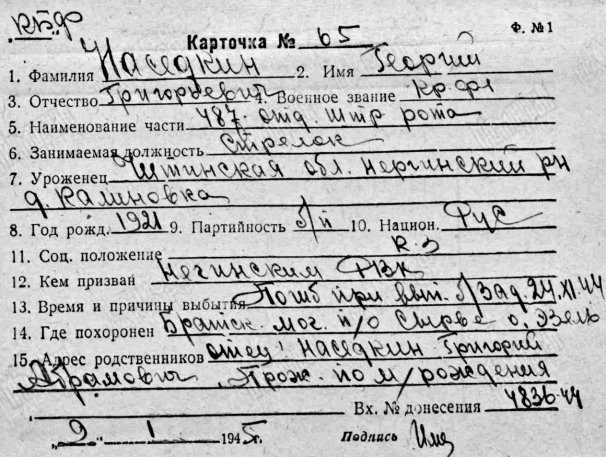 КБФ
Ф. №1
Карточка № 65
1. Фамилия Наседкин 2. Имя Георгий
3. Отчество Григорьевич 4. Военное звание кр. фл
5. Наименование части 487. отд. штр рота
6. Занимаемая должность Стрелок
7. Уроженец Читинская обл. Нергинский рн
д. Калиновка
8. Год рожд. 1921 9. Партийность б/п 10. Национ. Рус
11. Соц. положение К-З
12. Кем призван Негинским РВК
13. Время и причины выбытия Погиб при вып. б/зад 24.XI.44
14. Где похоронен Братск. мог. п/о Сырве о. Эзель
15. Адрес родственников отец: Наседкин Григорий
Абрамович, Прож. по м/рождения
Вх. № донесения 4836-44
"2" 1 1945 г.
Подпись